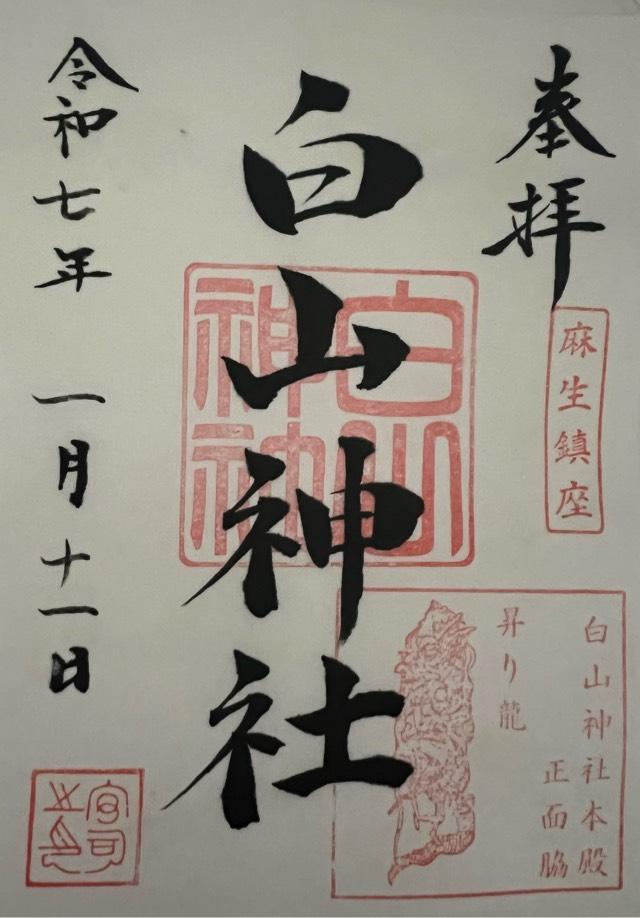 奉拝
麻生鎮座
白山神社本殿
正面脇
昇り龍
白山神社
白山神社
令和七年 一月十一日
宮司之印